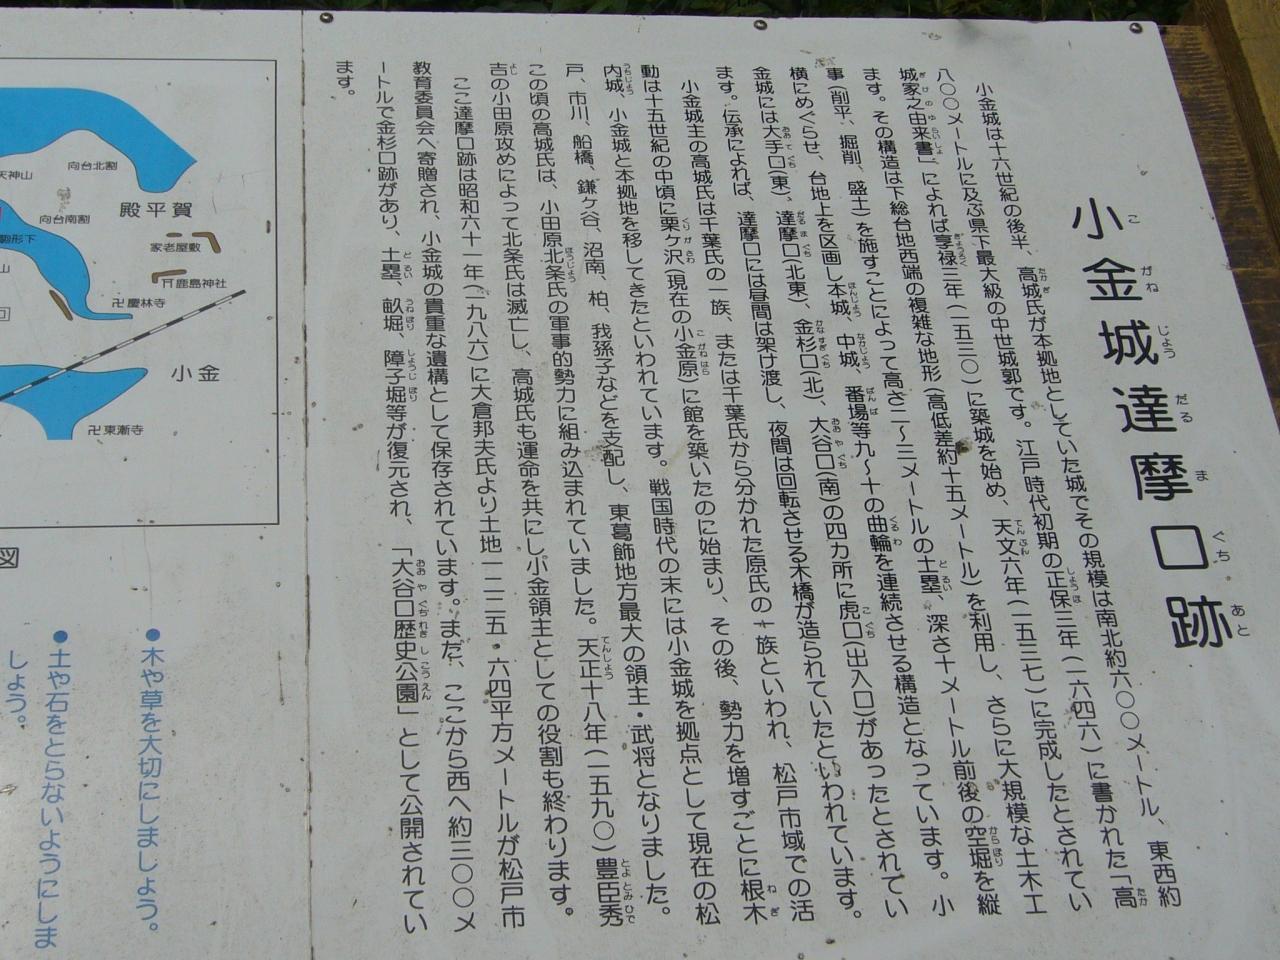 小金城達摩口跡
こ がね じょう だる ま ぐち あと
小金城は十六世紀の後半、高城氏が本拠地としていた城でその規模は南北約六〇〇メートル、東西約
八〇〇メートルに及ぶ県下最大級の中世城郭です。江戸時代初期の正保三年(一六四六)に書かれた「高
城家之由来書」によれば享禄三年(一五三〇)に築城を始め、天文六年(一五三七)に完成したとされてい
ます。その構造は下総台地西端の複雑な地形(高低差約十五メートル)を利用し、さらに大規模な土木工
事(削平、掘削、盛土)を施すことによって高さ二〜三メートルの土塁、深さ十メートル前後の空堀を縦
横にめぐらせ、台地上を区画し本城、中城、番場等九〜十の曲輪を連続させる構造となっています。小
金城には大手口(東)、達摩口(北東)、金杉口(北)、大谷口(南)の四カ所に虎口(出入口)があったとされてい
ます。伝承によれば、達摩口には昼間は架け渡し、夜間は回転させる木橋が造られていたといわれています。
小金城主の高城氏は千葉氏の一族、または千葉氏から分かれた原氏の一族といわれ、松戸市域での活
動は十五世紀の中頃に栗ヶ沢(現在の小金原)に館を築いたのに始まり、その後、勢力を増すごとに根木
内城、小金城と本拠地を移してきたといわれています。戦国時代の末には小金城を拠点として現在の松
戸、市川、船橋、鎌ヶ谷、沼南、柏、我孫子などを支配し、東葛飾地方最大の領主・武将となりました。
この頃の高城氏は、小田原北条氏の軍事的勢力に組み込まれていました。天正十八年(一五九〇)豊臣秀
吉の小田原攻めによって北条氏は滅亡し、高城氏も運命を共にし小金領主としての役割も終わります。
ここ達摩口跡は昭和六十一年(一九八六)に大倉邦夫氏より土地一二二五・六四平方メートルが松戸市
教育委員会へ寄贈され、小金城の貴重な遺構として保存されています。また、ここから西へ約三〇〇メ
ートルで金杉口跡があり、土塁、畝堀、障子堀等が復元され、「大谷口歴史公園」として公開されてい
ます。
天神山
向台北割
殿平賀
向台南割
駒形下
家老屋敷
⛩鹿島神社
卍慶林寺
小金
卍東漸寺
図
●木や草を大切にしましょう。
●土や石をとらないようにしま
しょう。